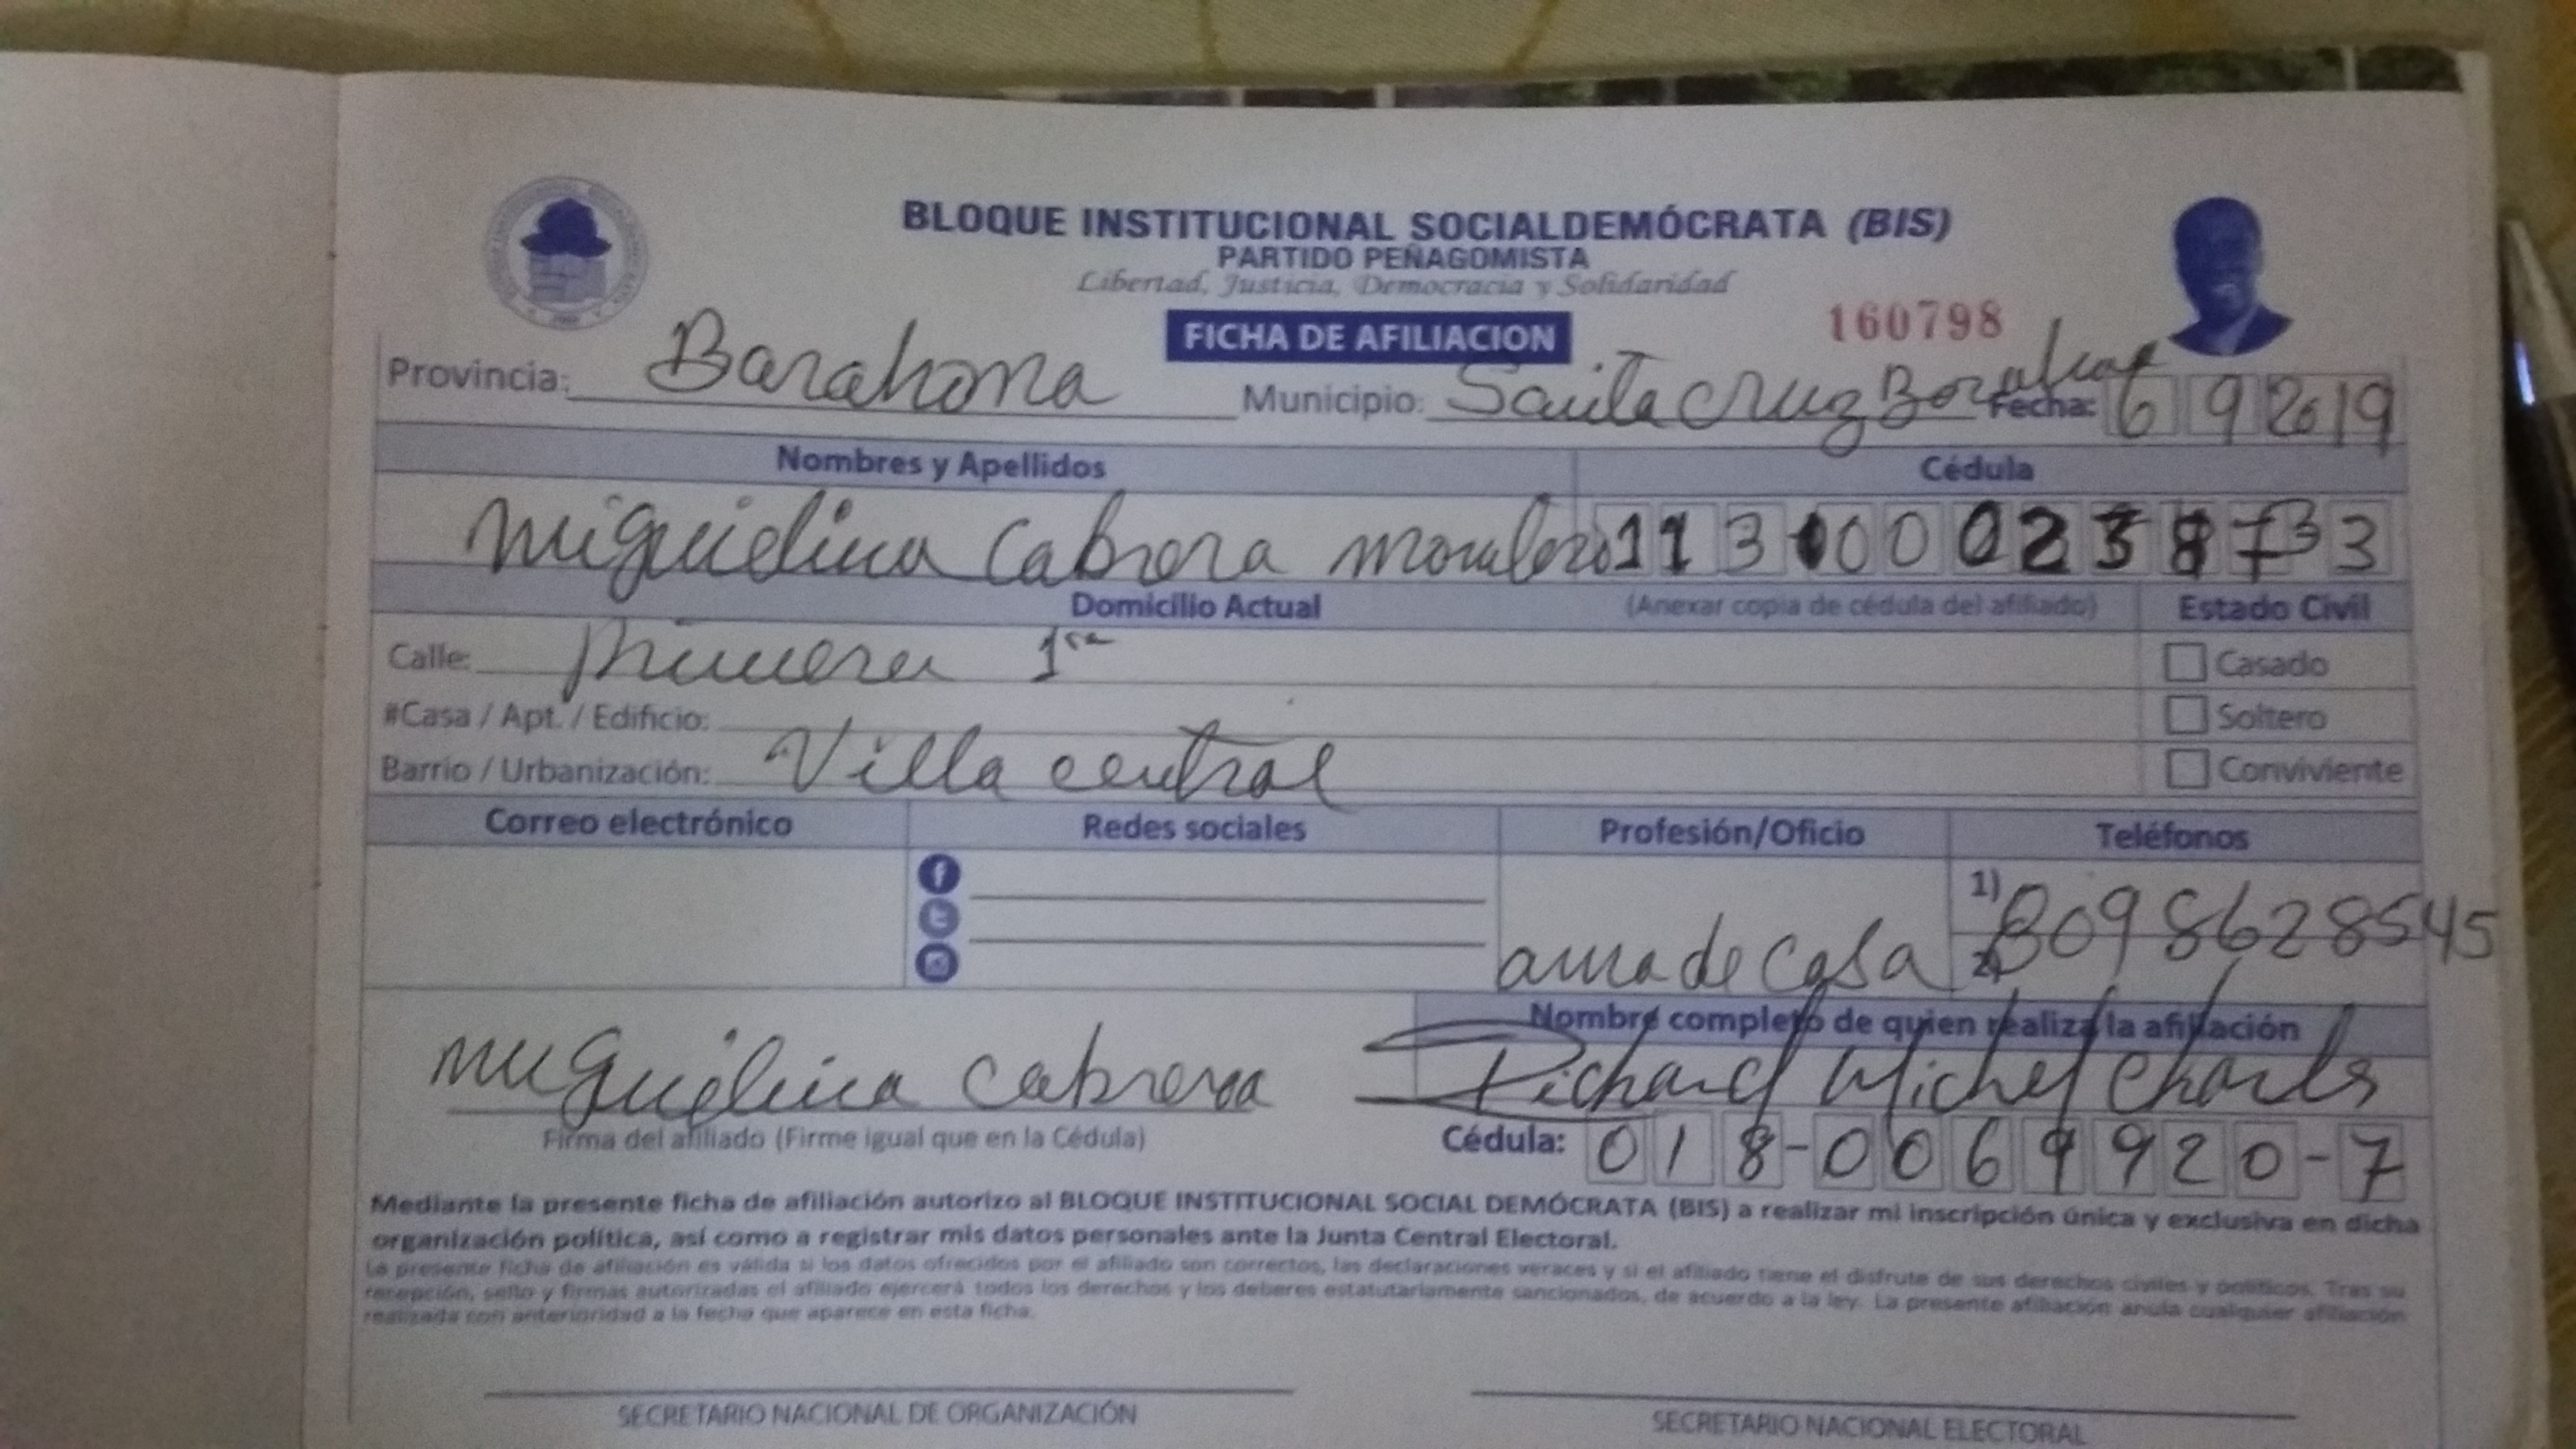 BLOQUE INSTITUCIONAL SOCIALDEMÓCRATA (BIS)
PARTIDO PEÑAGOMISTA
Libertad, Justicia, Democracia y Solidaridad
FICHA DE AFILIACION
160798
Provincia: Barahona Municipio: Santa Cruz Barahona Fecha: 6 9 2019
Nombres y Apellidos Cédula
Miguelina Cabrera 113
Domicilio Actual (Anexar copia de cédula del afiliado) Estado Civil
Calle: Primera 1ra Casado
#Casa / Apt. / Edificio: Soltero
Barrio / Urbanización: Villa central Conviviente
Correo electrónico Redes sociales Profesión/Oficio Teléfonos
ama de casa 1) 8098628545
2)
Nombre completo de quien realiza la afiliación
Miguelina Cabrera Richard Michel Charls
Firma del afiliado (Firme igual que en la Cédula) Cédula: 018-0069920-7
Mediante la presente ficha de afiliación autorizo al BLOQUE INSTITUCIONAL SOCIAL DEMÓCRATA (BIS) a realizar mi inscripción única y exclusiva en dicha
organización política, así como a registrar mis datos personales ante la Junta Central Electoral.
La presente ficha de afiliación es válida si los datos ofrecidos por el afiliado son correctos, las declaraciones veraces y si el afiliado tiene el disfrute de sus derechos civiles y políticos. Tras su
recepción, sello y firmas autorizadas el afiliado ejercerá todos los derechos y los deberes estatutariamente sancionados, de acuerdo a la ley. La presente afiliación anula cualquier afiliación
realizada con anterioridad a la fecha que aparece en esta ficha.
SECRETARIO NACIONAL DE ORGANIZACIÓN SECRETARIO NACIONAL ELECTORAL